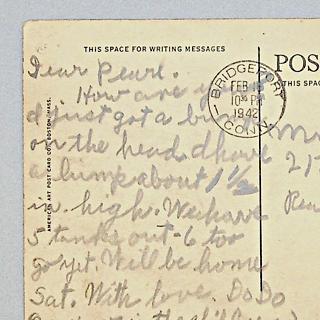 THIS SPACE FOR WRITING MESSAGES
POS
THIS SPAC
BRIDGEPORT
FEB 16
10 30 PM
1942
CONN.
AMERICAN ART POST CARD CO., BOSTON, MASS.
Dear Pearl.
How are y
I just got a bump
on the head I have
a bump about 1 1/2
in. high. We have
5 tanks out - 6 too
go yet. Will be home
Sat. With love. DoDo